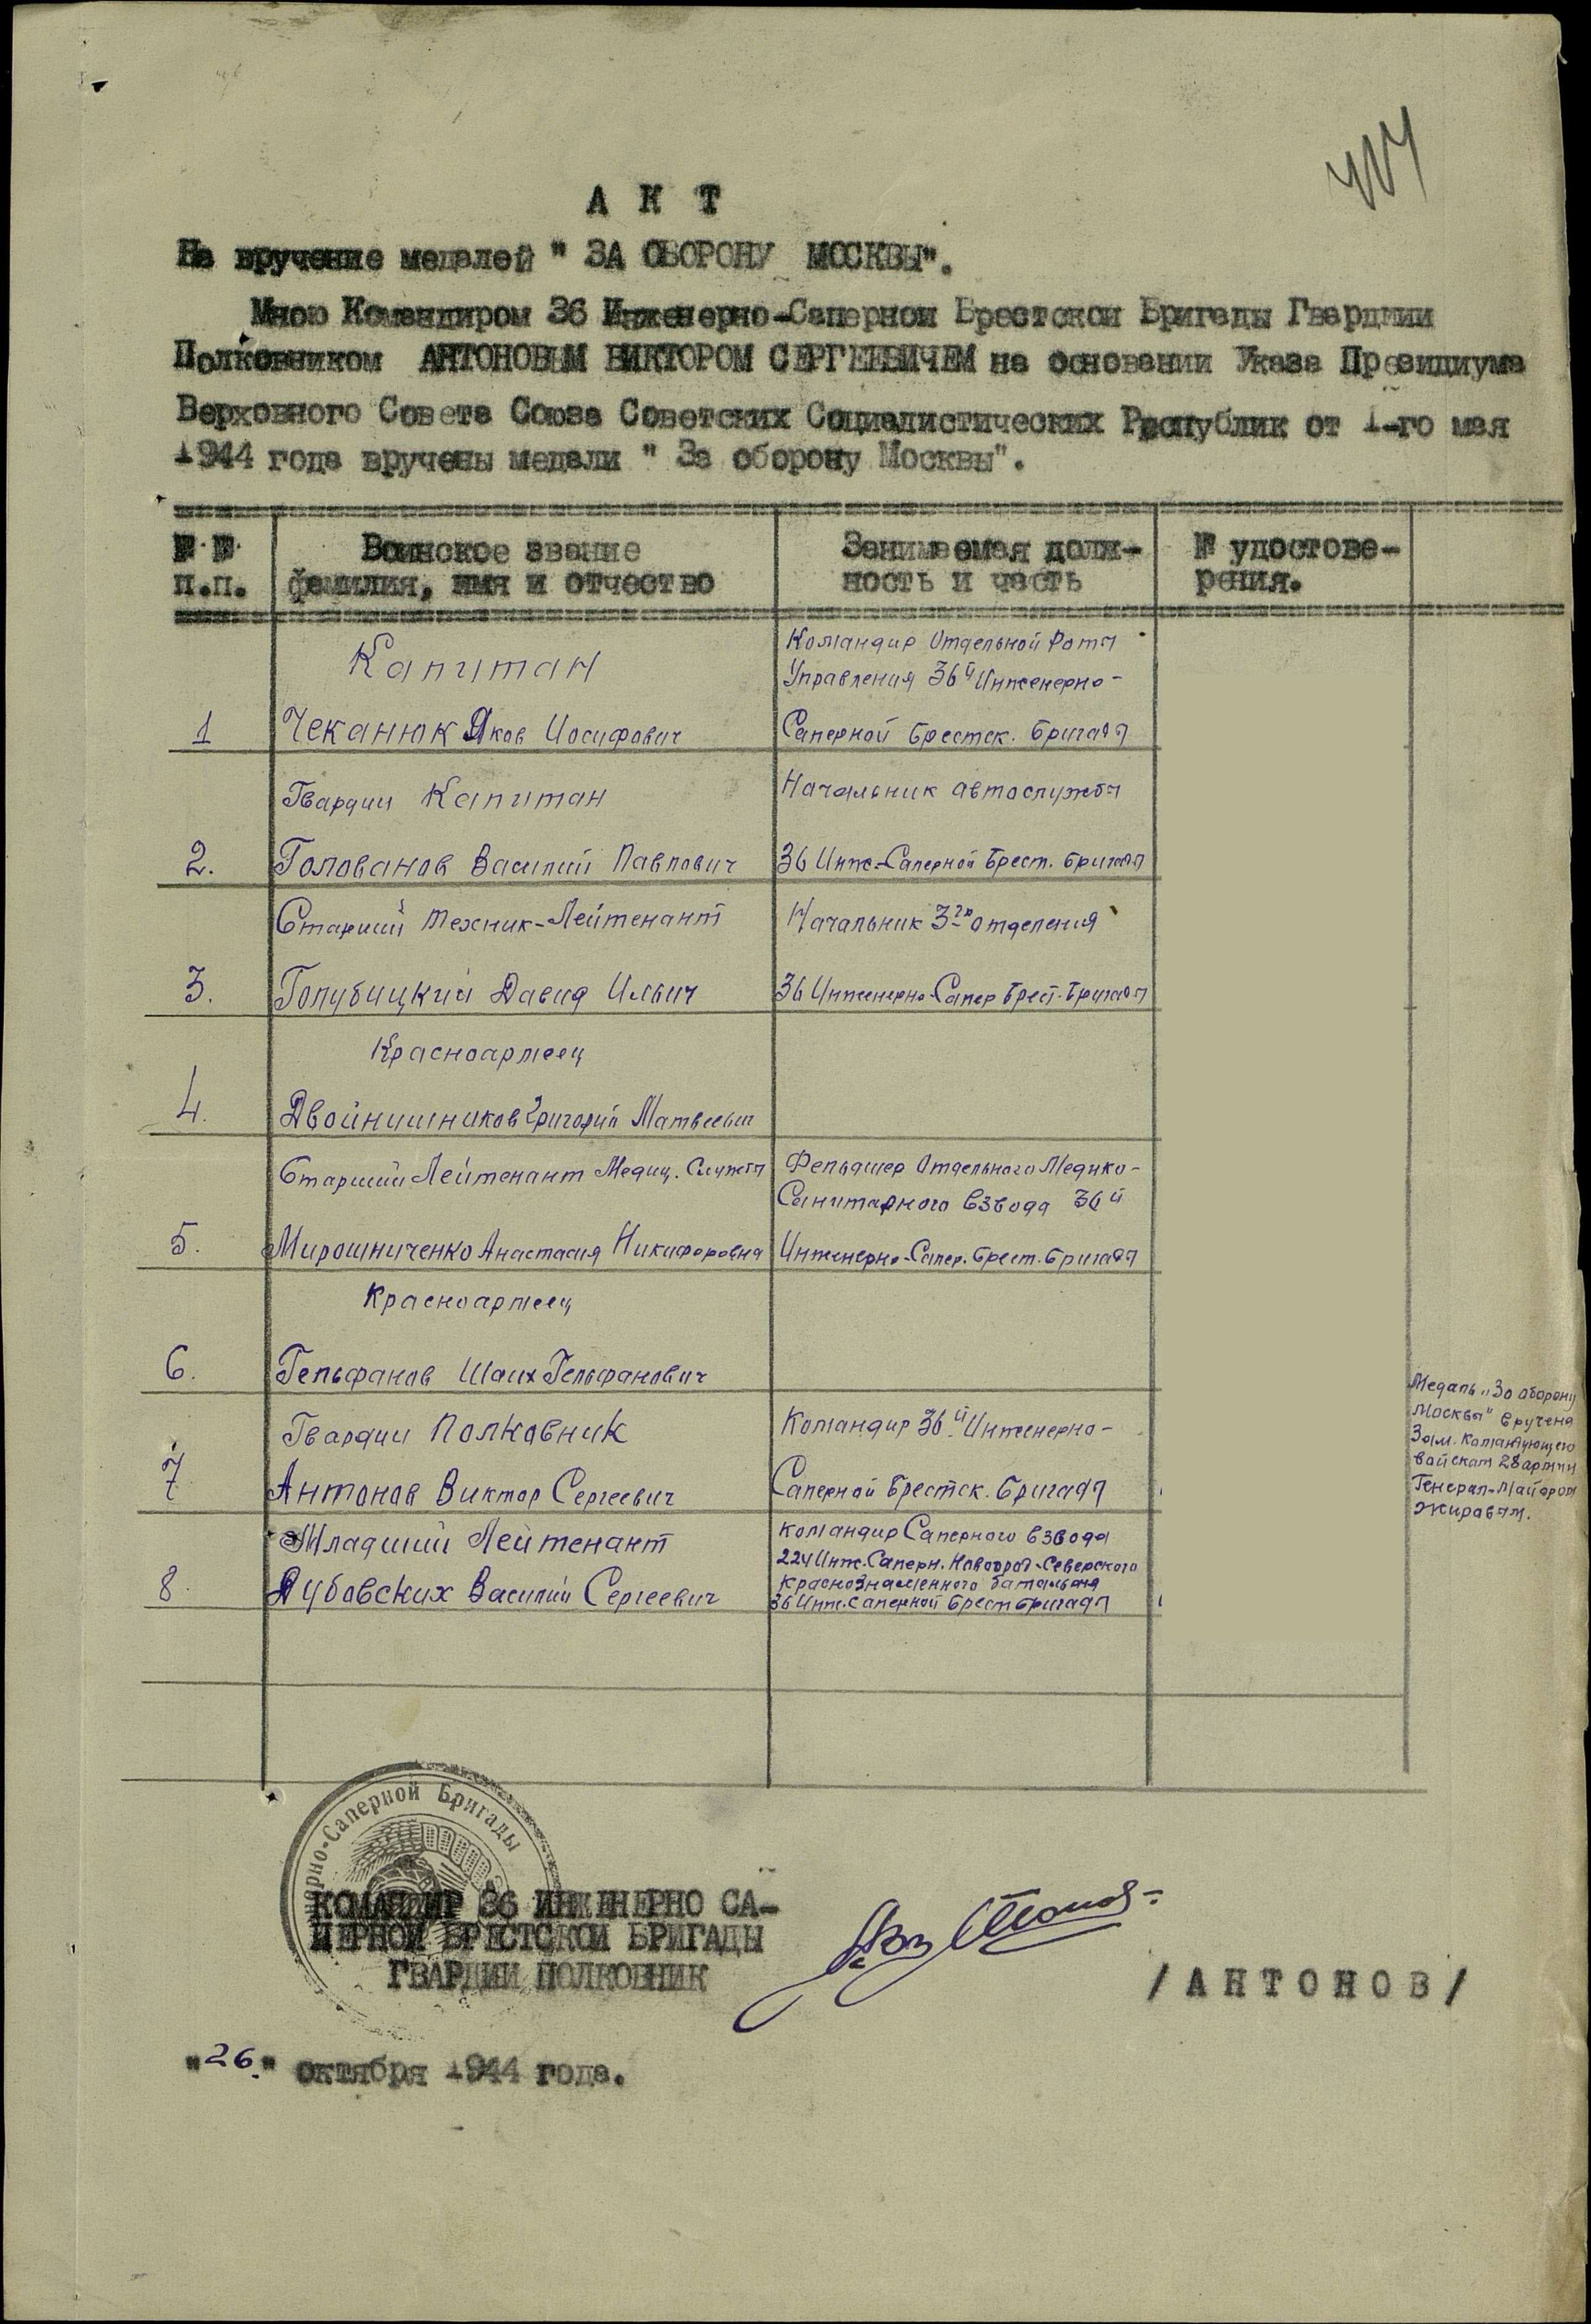 А К Т
На вручение медалей " ЗА ОБОРОНУ МОСКВЫ".
Мною Командиром 36 Инженерно-Саперной Брестской Бригады Гвардиии
Полковником АНТОНОВЫМ ВИКТОРОМ СЕРГЕЕВИЧЕМ на основании Указа Президиума
Верховного Совета Союза Советских Социалистических Республик от 1-го мая
1944 года вручены медали " За оборону Москвы".
№ №
п.п.
Воинское звание
фамилия, имя и отчество
Занимаемая долж-
ность и часть
№ удостове-
рения.
Капитан
Командир Отдельной Роты
Управления 36й Инженерно-
1
Чеканюк Яков Иосифович
Саперной Брестск. Бригады
Гвардии Капитан
Начальник автослужбы
2.
Голованов Василий Павлович
36 Инж-Саперной Брест. Бригады
Старший Техник-Лейтенант
Начальник 3го отделения
3.
Голубицкий Давид Ильич
36 Инженерно-Сапер Брест. Бригады
Красноармеец
4.
Двойнишников Григорий Матвеевич
Старший Лейтенант Медиц. Службы
Фельдшер Отдельного Медико-
Санитарного взвода 36й
5.
Мирошниченко Анастасия Никифоровна
Инженерно-Сапер. Брест. Бригады
Красноармеец
6.
Гельфанов Шаих Гельфанович
Гвардии Полковник
Командир 36й Инженерно-
7
Антонов Виктор Сергеевич
Саперной Брестск. Бригады
Медаль "За оборону
Москвы" вручена
Зам. Командующего
войскам 28 армии
Генерал-Майором
Жировым.
Младший Лейтенант
командир Саперного взвода
224 Инж. Саперн. Новгород-Северского
Краснознаменного батальона
8.
Дубовских Василий Сергеевич
36 Инж. саперной Брест Бригады
рно-Саперной Бригады
КОМАНДИР 36 ИНЖЕНЕРНО СА-
ПЕРНОЙ БРЕСТСКОЙ БРИГАДЫ
ГВАРДИИ ПОЛКОВНИК
/ А Н Т О Н О В /
"26" октября 1944 года.